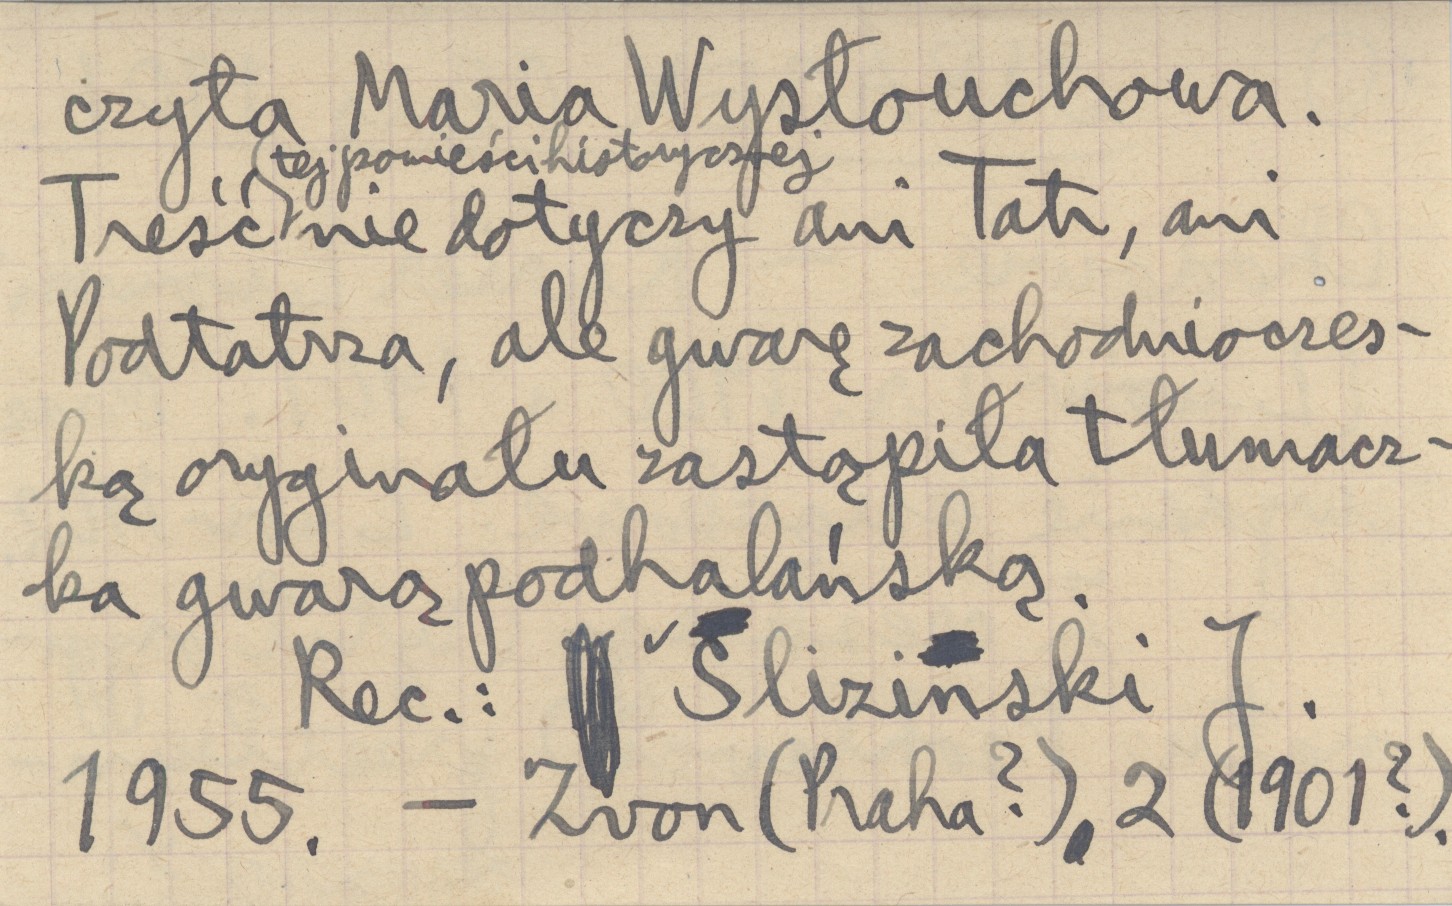 czyła Maria Wysłouchowa.
(tej powieści historycznej
Treść) nie dotyczy ani Tatr, ani
Podtatrza, ale gwarę zachodnioczes-
ką oryginału zastąpiła tłumacz-
ka gwarą podhalańską.
Rec.: Slizinski J.
1955. — Zvon (Praha?), 2 (1901?).